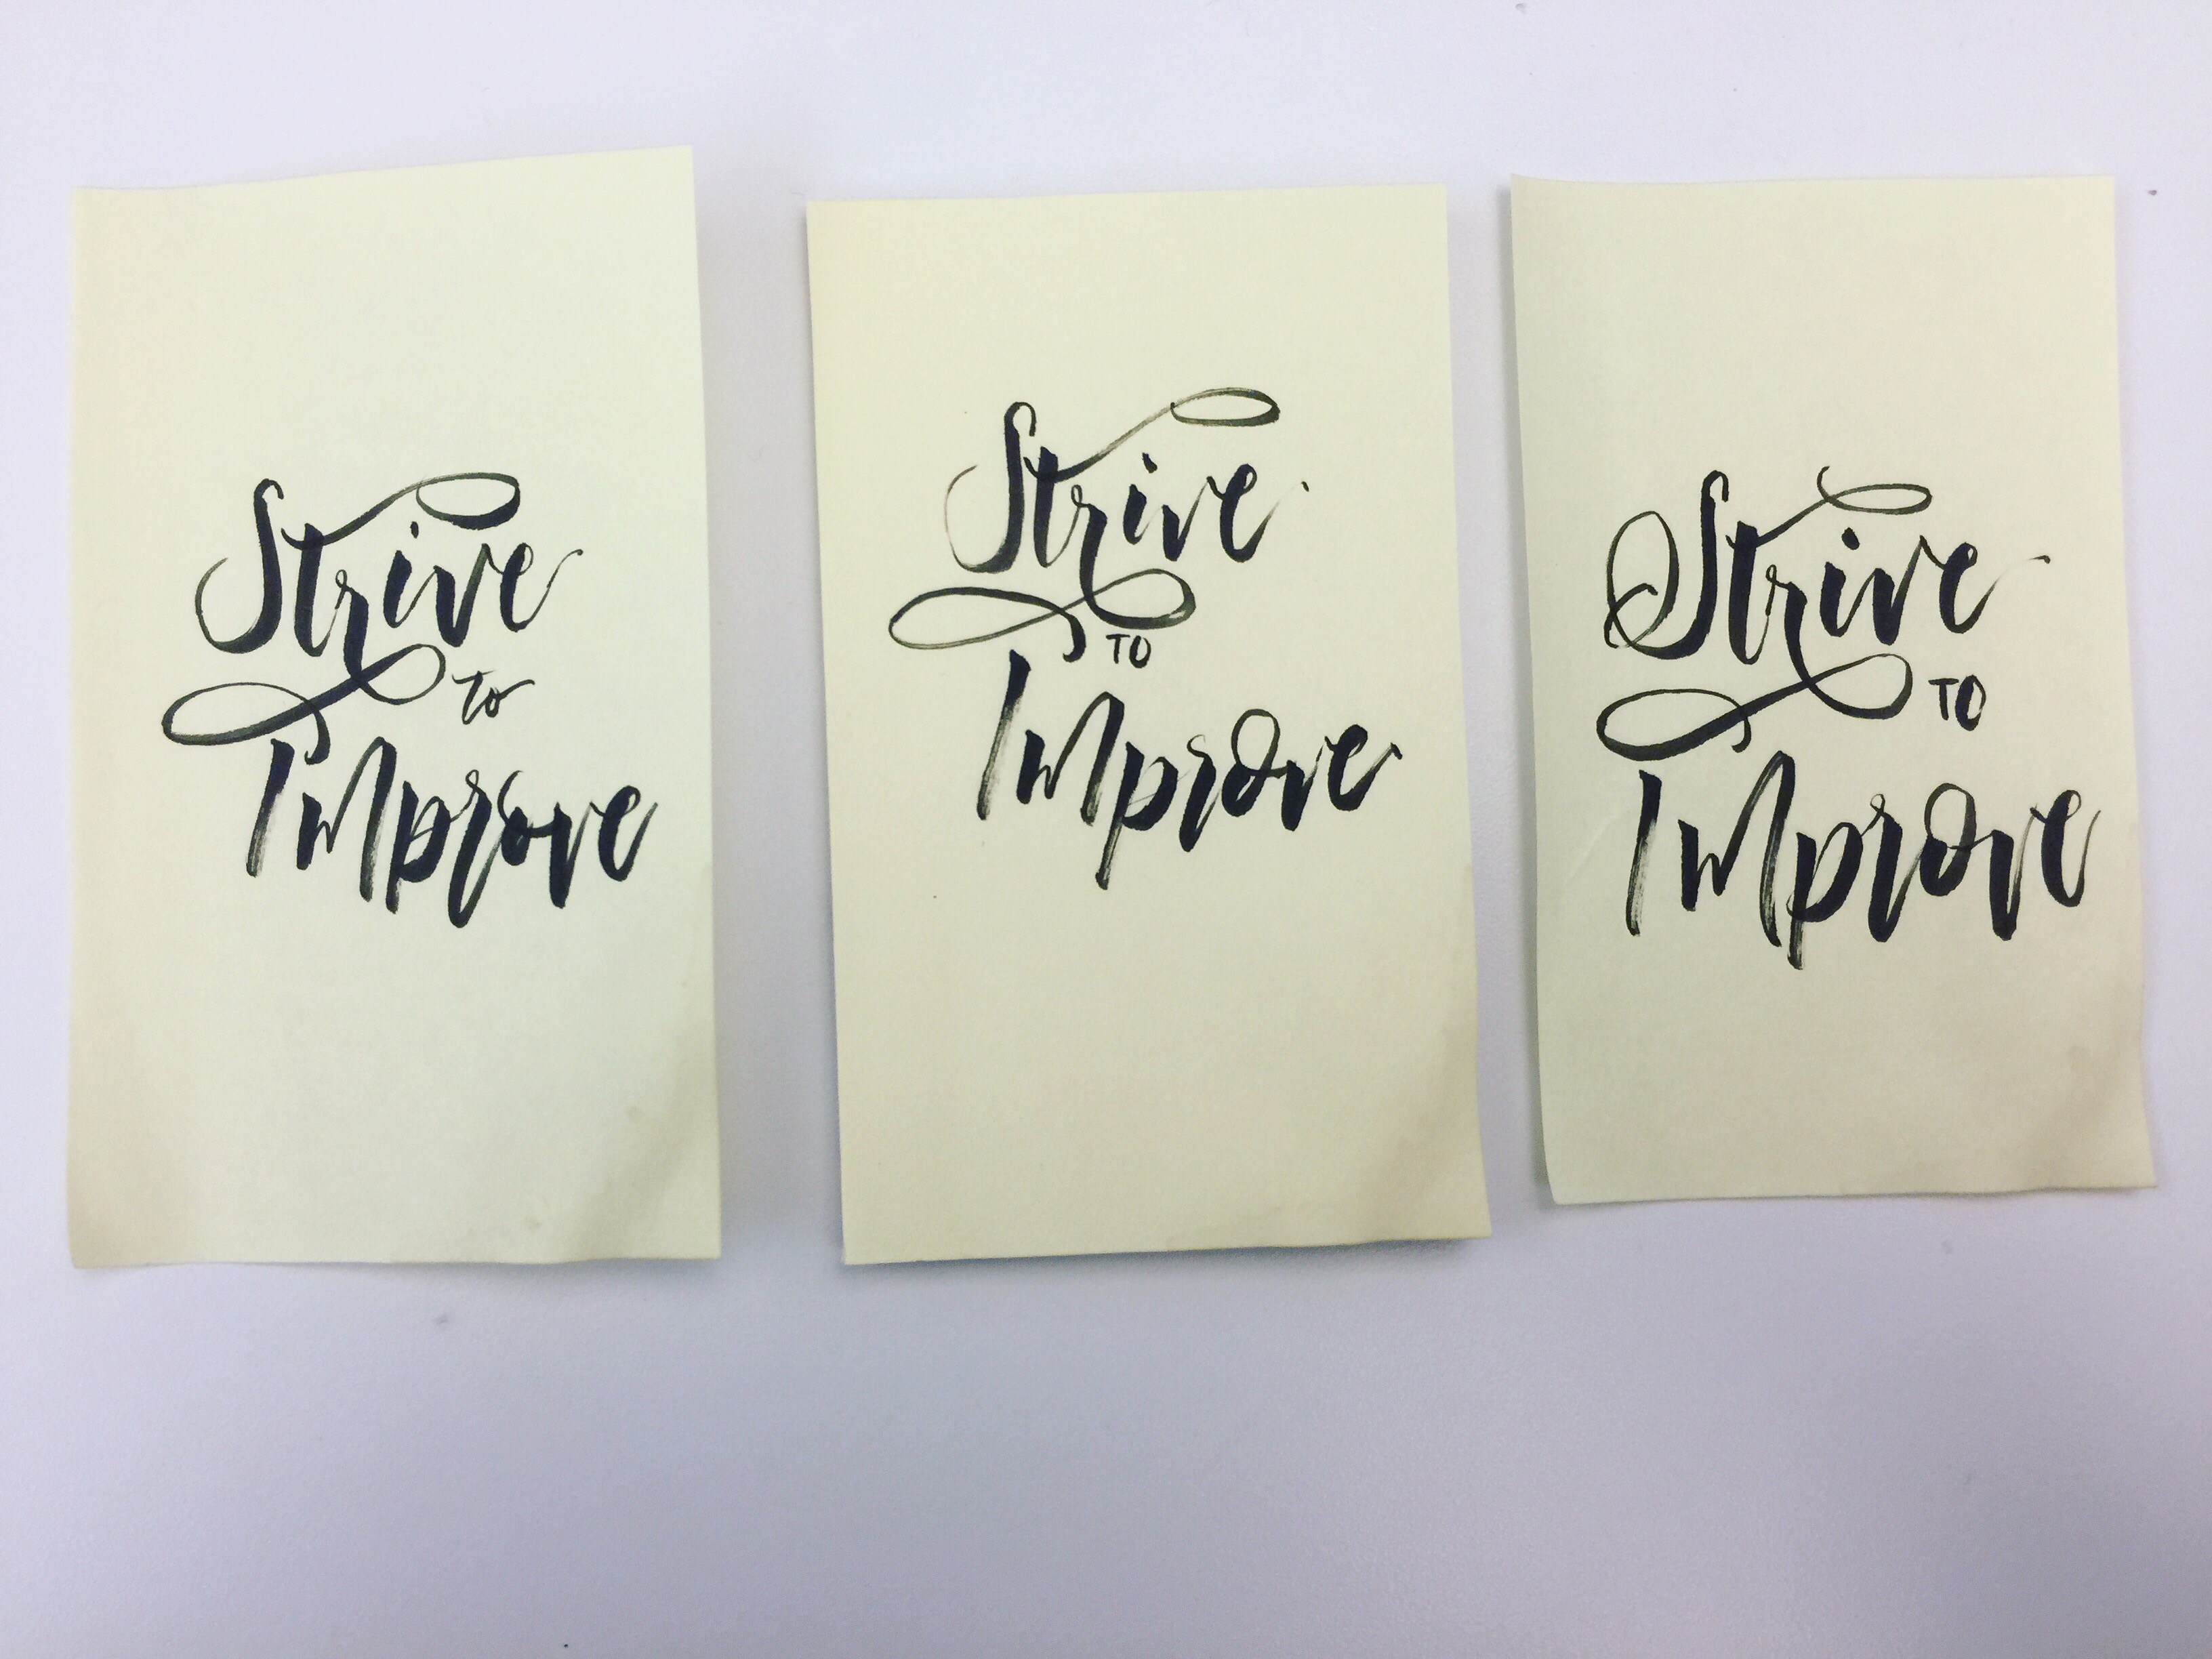 Strive
to
Improve
Strive
TO
Improve
Strive
TO
Improve